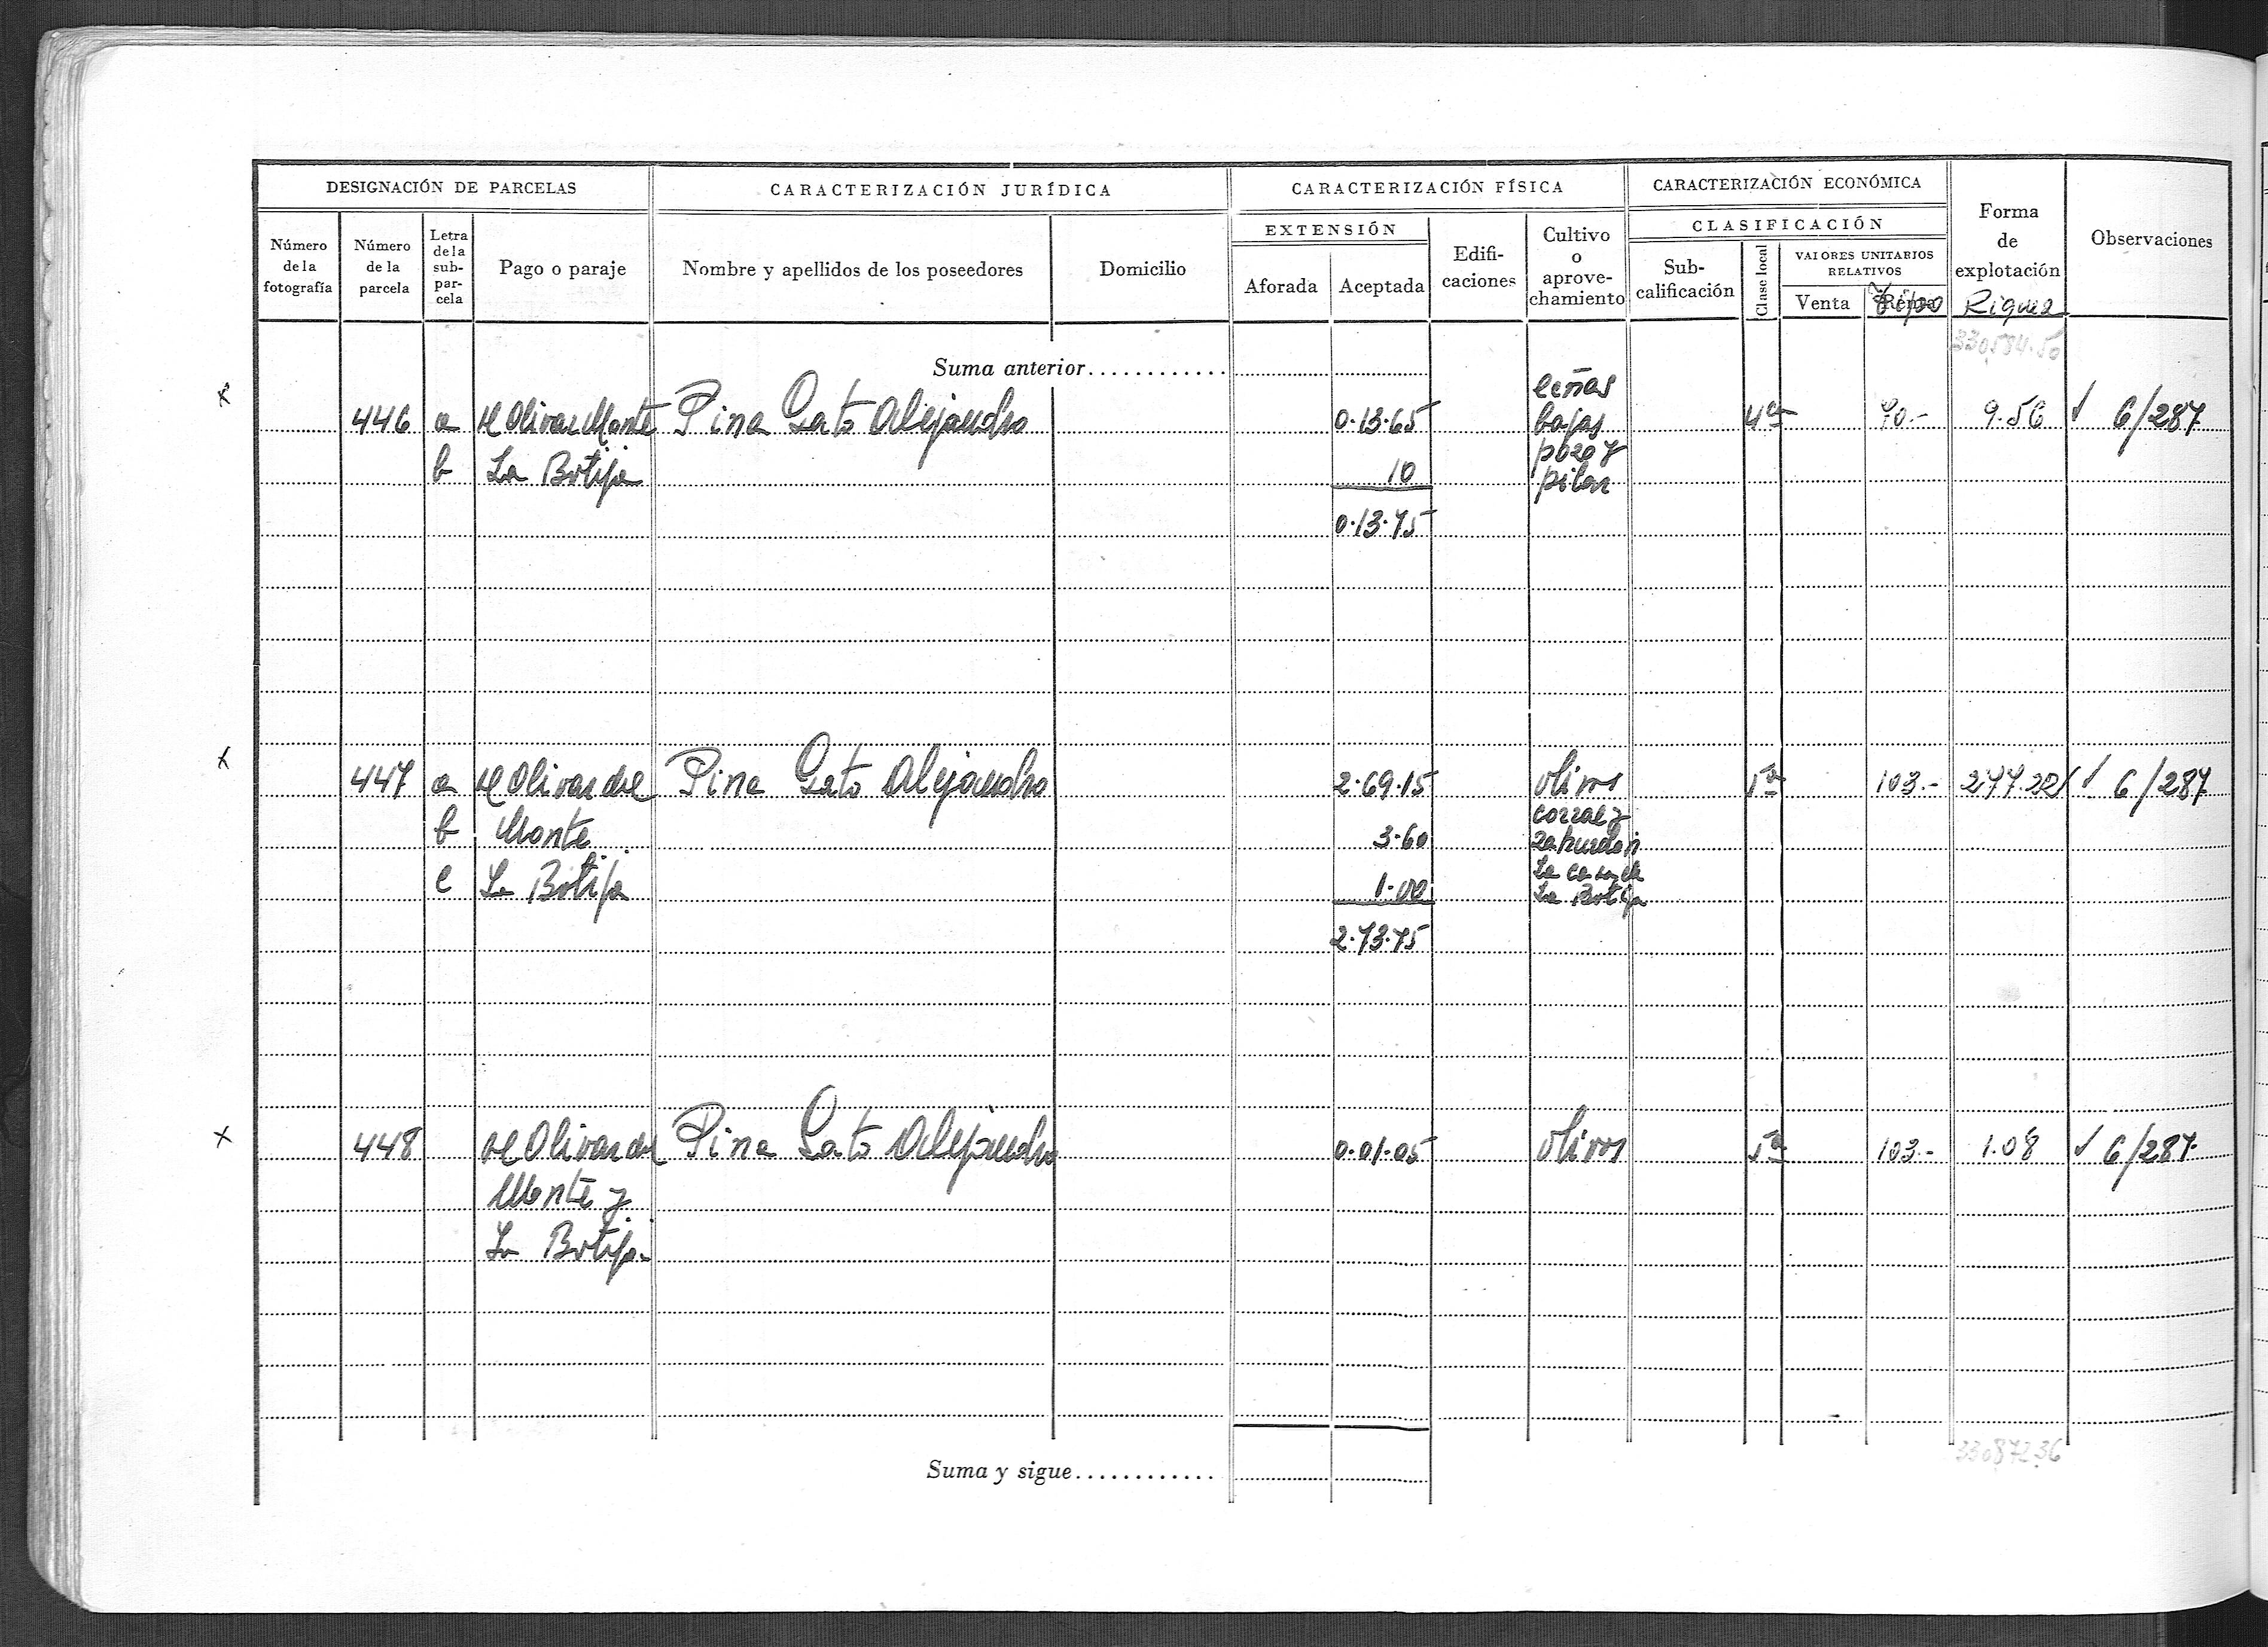 DESIGNACIÓN DE PARCELAS CARACTERIZACIÓN JURÍDICA CARACTERIZACIÓN FÍSICA CARACTERIZACIÓN ECONÓMICA Forma de explotación Observaciones
Número de la fotografía Número de la parcela Letra de la sub-par-cela Pago o paraje Nombre y apellidos de los poseedores Domicilio EXTENSIÓN Aforada Aceptada Edifi-caciones Cultivo o aprove-chamiento CLASIFICACIÓN Sub-calificación Clase local VALORES UNITARIOS RELATIVOS Venta Renta Tipo Riqueza
330.584.50
Suma anterior
x 446 a el Olivar Monte Pina Gato Alejandro 0.13.65 leñas bajas 4ª 70.- 9.56 √ 6/287
b La Botija 10 pozo y pilar
0.13.75
x 447 a el Olivar del Pina Gato Alejandro 2.69.15 olivos 5ª 103.- 277.22 √ 6/287
b Monte 3.60 corral y zahurdon
c La Botija 1.00 La casa de La Botija
2.73.75
x 448 el Olivar del Pina Gato Alejandro 0.01.05 olivos 5ª 103.- 1.08 √ 6/287
Monte y
La Botija
330.872.36
Suma y sigue